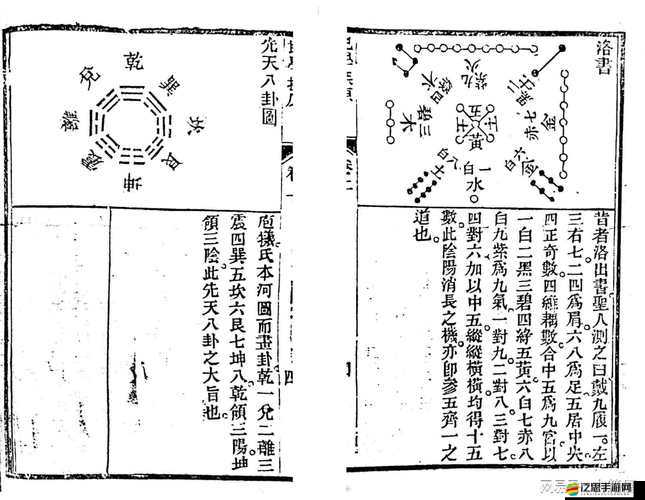 洛書
九紫火
四綠木
二黑土
三碧木
五黃土
七赤金
八白土
一白水
六白金
昔者洛出書聖人測之曰戴九履一。左
三右七二四爲肩六八爲足五居中央
四正奇數四維耦數合中五爲九宮以
一白二黑三碧四綠五黃六白七赤八
白九紫爲九氣一對九二對八三對七
四對六加以中五縱縱橫橫均得十五
數此陰陽消長之機亦卽參五齊一之
道也
卷
四
先天八卦圖
乾
兌
巽
離
坎
震
艮
坤
庖犧氏本河圖而畫卦乾一兌二離三
震四巽五坎六艮七坤八乾領三陽坤
領三陰此先天八卦之大旨也
泛思手游网